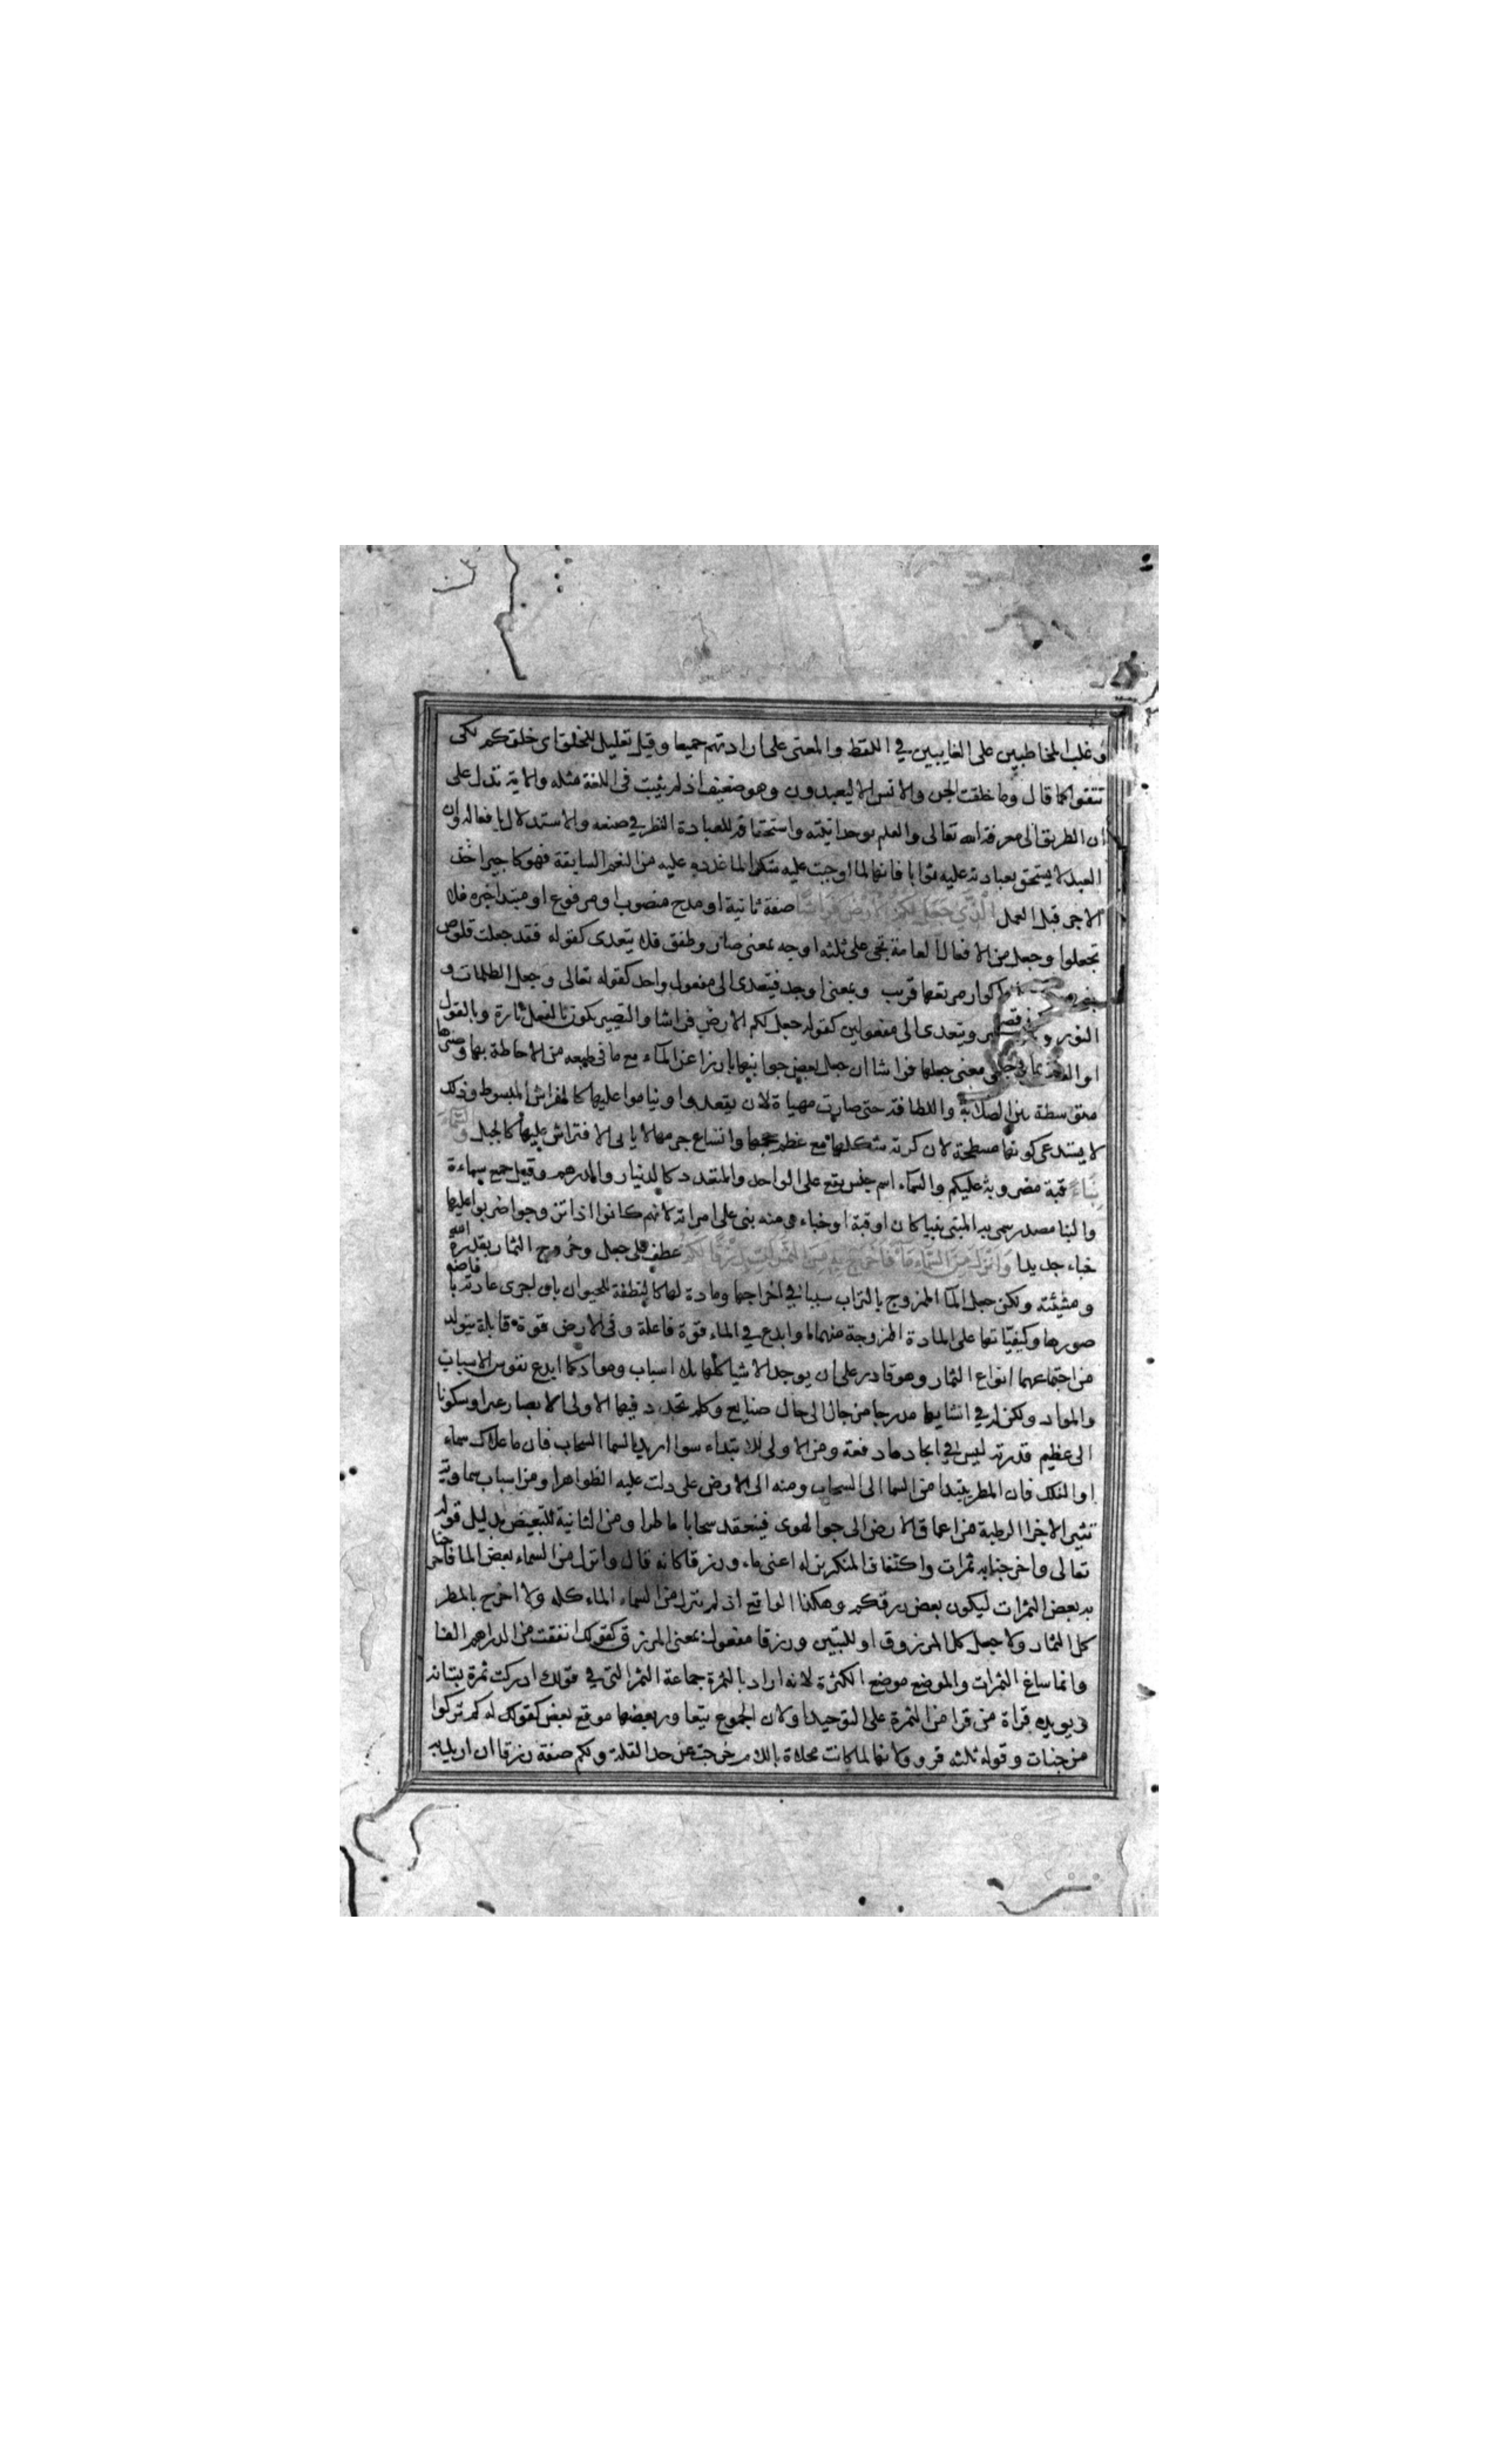 وغلب المخاطبين على الغايبين في اللفظ والمعنى على ارادتهم جميعا وقيل تعليل للخلق اى خلقكم لكى
تتقوا كما قال وما خلقت الجن والانس الا ليعبدون وهو ضعيف اذ لم يثبت في اللغة مثله والاية تدل على
ان الطريق الى معرفة الله تعالى والعلم بوحدانيته واستحقاقه للعبادة النظر في صنعه والاستدلال بافعاله وان
العبد لا يستحق بعبادته عليه ثوابا فانها لما اوجبت عليه شكرا لما عدده عليه من النعم السابقة فهو كاجير اخذ
الاجر قبل العمل الذي جعل لكم الارض فراشا صفة ثانية او مدح منصوب او مرفوع او مبتدا خبره فلا
تجعلوا وجعل من الافعال العامة تجئ على ثلثه اوجه بمعنى صار وطفق فلا يتعدى كقوله فقد جعلت قلوص
اكوار مرتعها قريب وبمعنى اوجد فيتعدى الى مفعول واحد كقوله تعالى وجعل الظلمات و
النور و ويتعدى الى مفعولين كقوله جعل لكم الارض فراشا والتصيير يكون بالفعل تارة وبالقول
او العقد معنى جعلها فراشا ان جعل بعض جوانبها بارزا عن الماء مع ما في طبعه من الاحاطة بها وصيرها
متوسطة بين الصلابة واللطافة حتى صارت مهياة لان يقعدوا ويناموا عليها كالفراش المبسوط وذلك
لا يستدعى كونها مسطحة لان كرية شكلها مع عظم حجمها واتساع جرمها لا يابى الافتراش عليها كالجبل والسماء
بناء قبة مضروبة عليكم والسماء اسم جنس يقع على الواحد والمتعدد كالدنيار والدرهم وقيل جمع سماءة
والبنا مصدر سمى به المبنى بيتا كان او قبة او خباء ومنه بنى على امراته لانهم كانوا اذا تزوجوا ضربوا عليها
خباء جديدا وانزل من السماء ماء فاخرج به من الثمرات رزقا لكم عطف على جعل وخروج الثمار بقدرة الله
ومشيئته ولكن جعل الما الممزوج بالتراب سببا في اخراجها ومادة لها كالنطفة للحيوان بان اجرى عادته بافاضه
صورها وكيفياتها على المادة الممزوجة منهما او ابدع في الماء قوة فاعلة وفي الارض قوة قابلة يتولد
من اجتماعهما انواع الثمار وهو قادر على ان يوجد الاشيا كلها بلا اسباب ومواد كما ابدع نفوس الاسباب
والمواد ولكن له في انشايها مدرجا من حال الى حال صنايع وحكم تجدد فيها لاولى الابصار عبرا وسكونا
الى عظيم قدرته ليس في ايجادها دفعة ومن الاولى للابتداء سوا اريد بالسما السحاب فان ما علاك سماء
او الفلك فان المطر يبتدا من السما الى السحاب ومنه الى الارض على دلت عليه الظواهر او من اسباب سماوية
تثير الاجزا الرطبة من اعماق الارض الى جو الهوى فينعقد سحابا ماطرا ومن الثانية للتبعيض بدليل قوله
تعالى واخرجنا به ثمرات واكتناف المنكرين له اعنى ماء ورزقا كانه قال وانزل من السماء بعض الما فاخرجنا
به بعض الثمرات ليكون بعض رزقكم وهكذا الواقع اذ لم ينزل من السماء الماء كله ولا اخرج بالمطر
كل الثمار ولا جعل كل المرزوق او للتبيين ورزقا مفعول بمعنى المرزوق كقولك انفقت من الدراهم الفا
وانما ساغ الثمرات والموضع موضع الكثرة لانه اراد بالثمرة جماعة الثمر التى في قولك ادركت ثمرة بستانه
ويويده قراة من قرا من الثمرة على التوحيد او لان الجموع يتعاور بعضها موقع بعض كقولك له كم تركوا
من جنات وقوله ثلثه قرو ولانها لما كانت محلاة باللام خرجت عن حد القلة ولكم صفة رزقا ان اريد به